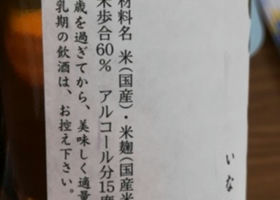 材料名 米(国産)・米麹(国産米
米歩合60% アルコール分15度
歳を過ぎてから、美味しく適量
乳期の飲酒は、お控え下さい。
いな